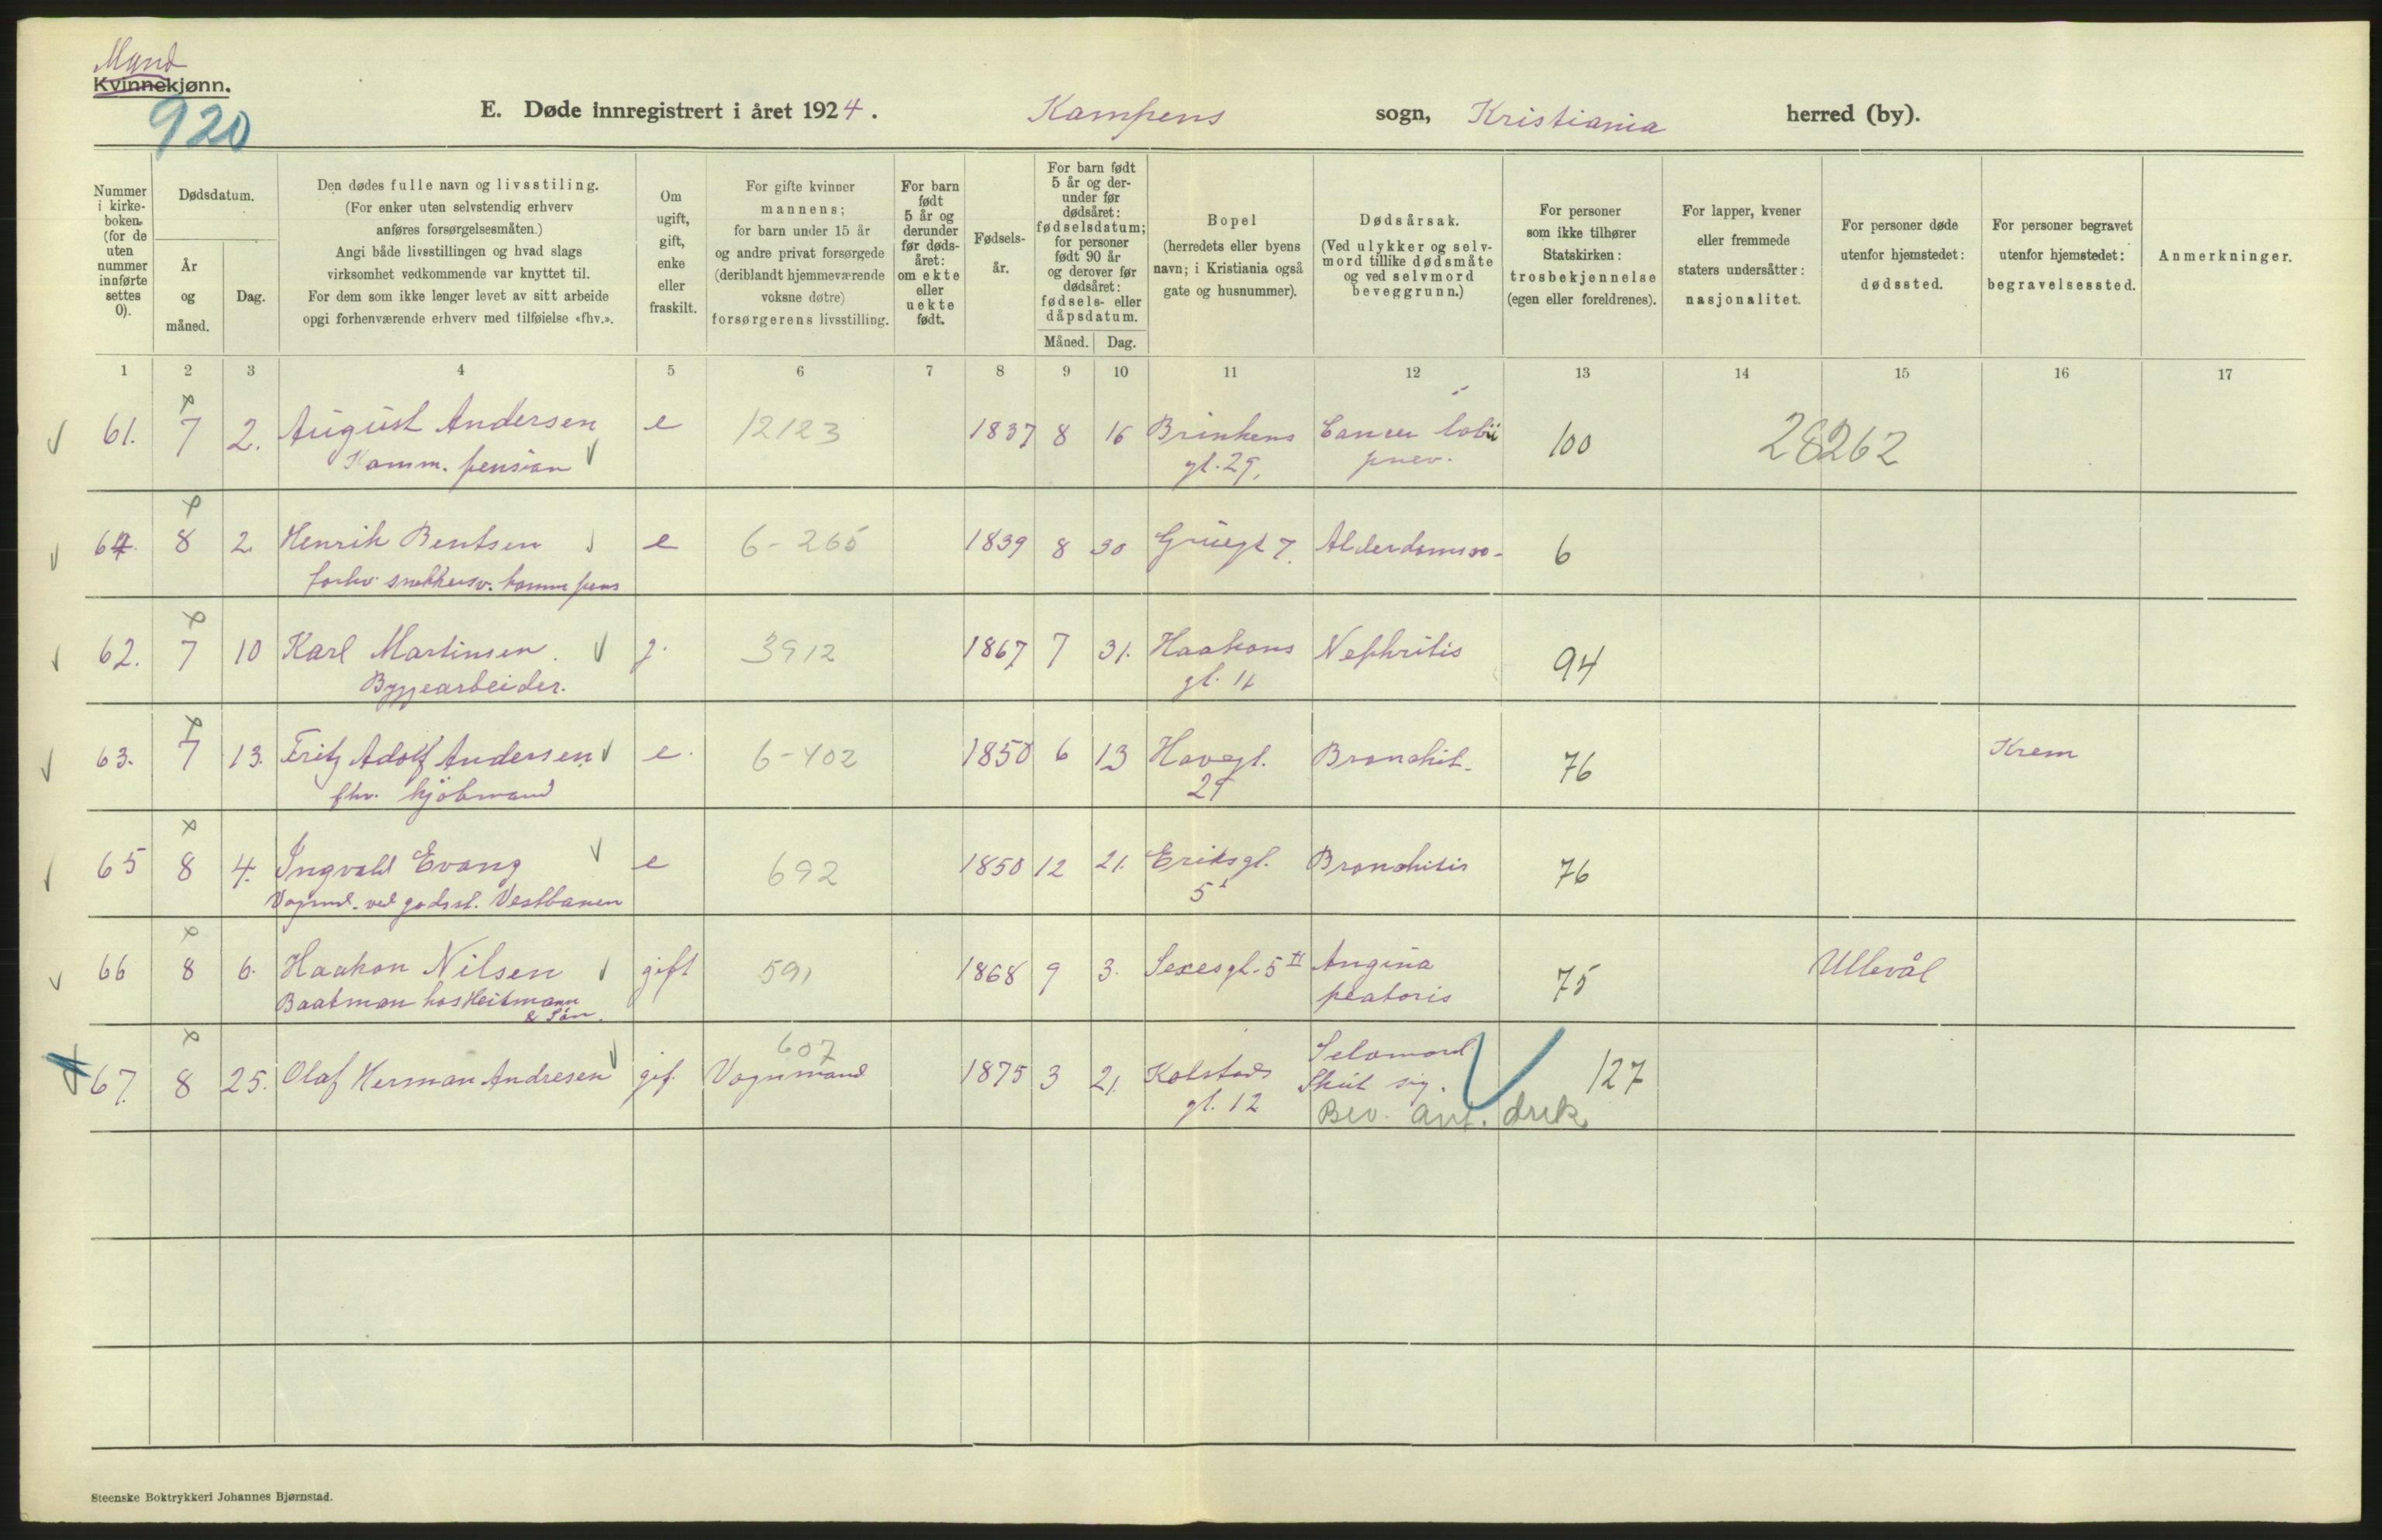 Mand
Kvinnekjønn.
920
E. Døde innregistrert i året 1924. Kampens sogn, Kristiania herred (by).
Nummer i kirkeboken (for de uten nummer innførte settes 0).
Dødsdatum.
År og måned.
Dag.
Den dødes fulle navn og livsstiling.
(For enker uten selvstendig erhverv
anføres forsørgelsesmåten.)
Angi både livsstillingen og hvad slags
virksomhet vedkommende var knyttet til.
For dem som ikke lenger levet av sitt arbeide
opgi forhenværende erhverv med tilføielse «fhv.».
Om ugift, gift, enke eller fraskilt.
For gifte kvinner
mannens;
for barn under 15 år
og andre privat forsørgede
(deriblandt hjemmeværende
voksne døtre)
forsørgerens livsstilling.
For barn født 5 år og derunder før dødsåret: om ekte eller uekte født.
Fødselsår.
For barn født 5 år og derunder før dødsåret: fødselsdatum; for personer født 90 år og derover før dødsåret: fødsels- eller dåpsdatum.
Måned. Dag.
Bopel
(herredets eller byens
navn; i Kristiania også
gate og husnummer).
Dødsårsak.
(Ved ulykker og selvmord tillike dødsmåte
og ved selvmord
beveggrunn.)
For personer
som ikke tilhører
Statskirken:
trosbekjennelse
(egen eller foreldrenes).
For lapper, kvener
eller fremmede
staters undersåtter:
nasjonalitet.
For personer døde
utenfor hjemstedet:
dødssted.
For personer begravet
utenfor hjemstedet:
begravelsessted.
Anmerkninger.
1 2 3 4 5 6 7 8 9 10 11 12 13 14 15 16 17
61. 7 2. August Andersen e 12123 1837 8 16 Brinkens Cancer labii 100 28262
Komm. pension gt. 29,
64. 8 2. Henrik Bentsen e 6-265 1839 8 30 Grüegt 7. 6
forhv. snekkersv. komm pens
62. 7 10 Karl Martinsen g. 3912 1867 7 31. Haakons Nephritis 94
Byggearbeider. gt. 11
63. 7 13. Fritz Adolf Andersen e. 6-402 1850 6 13 Havegt. Bronchit. 76 Krem
fhv. kjöbmand 29
65 8 4. Ingvald Evang e 692 1850 12 21. Eriksgt. Bronchitis 76
Vognm. ved godsst. Vestbanen 5
66 8 6. Haakon Nilsen gift 591 1868 9 3. Sexesgt. 5 II Angina 75 Ullevål
Baatman hos Heitmann pectoris
& Sön.
607
67. 8 25. Olaf Herman Andresen gif. Vognmand 1875 3 21. Kolstads Selvmord 127
gt. 12 Skut sig.
Bev. ant. drik
Steenske Boktrykkeri Johannes Bjørnstad.